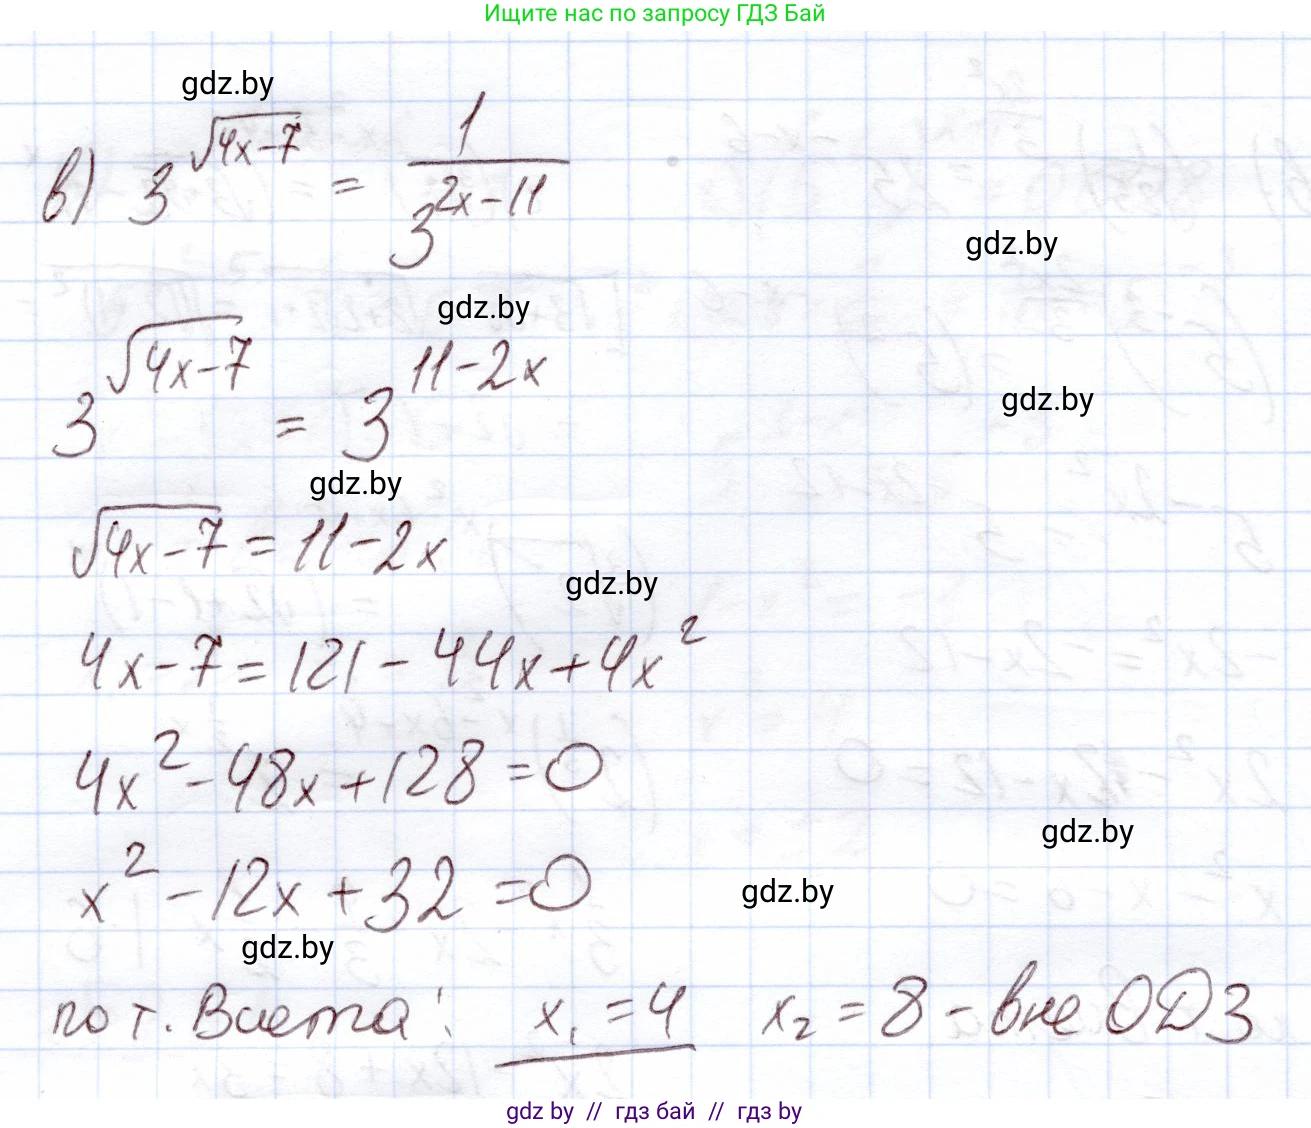 Ищите нас по запросу ГДЗ Бай
gdz.by
в) 3^√(4x-7) = 1/3^(2x-11)
gdz.by
gdz.by
3^√(4x-7) = 3^(11-2x)
gdz.by
gdz.by
√(4x-7) = 11-2x
gdz.by
4x-7 = 121-44x+4x²
4x²-48x+128=0
gdz.by
x²-12x+32=0
gdz.by
gdz.by
по т. Виета: x₁=4 x₂=8 - вне ОДЗ
gdz by // гдз бай // gdz by